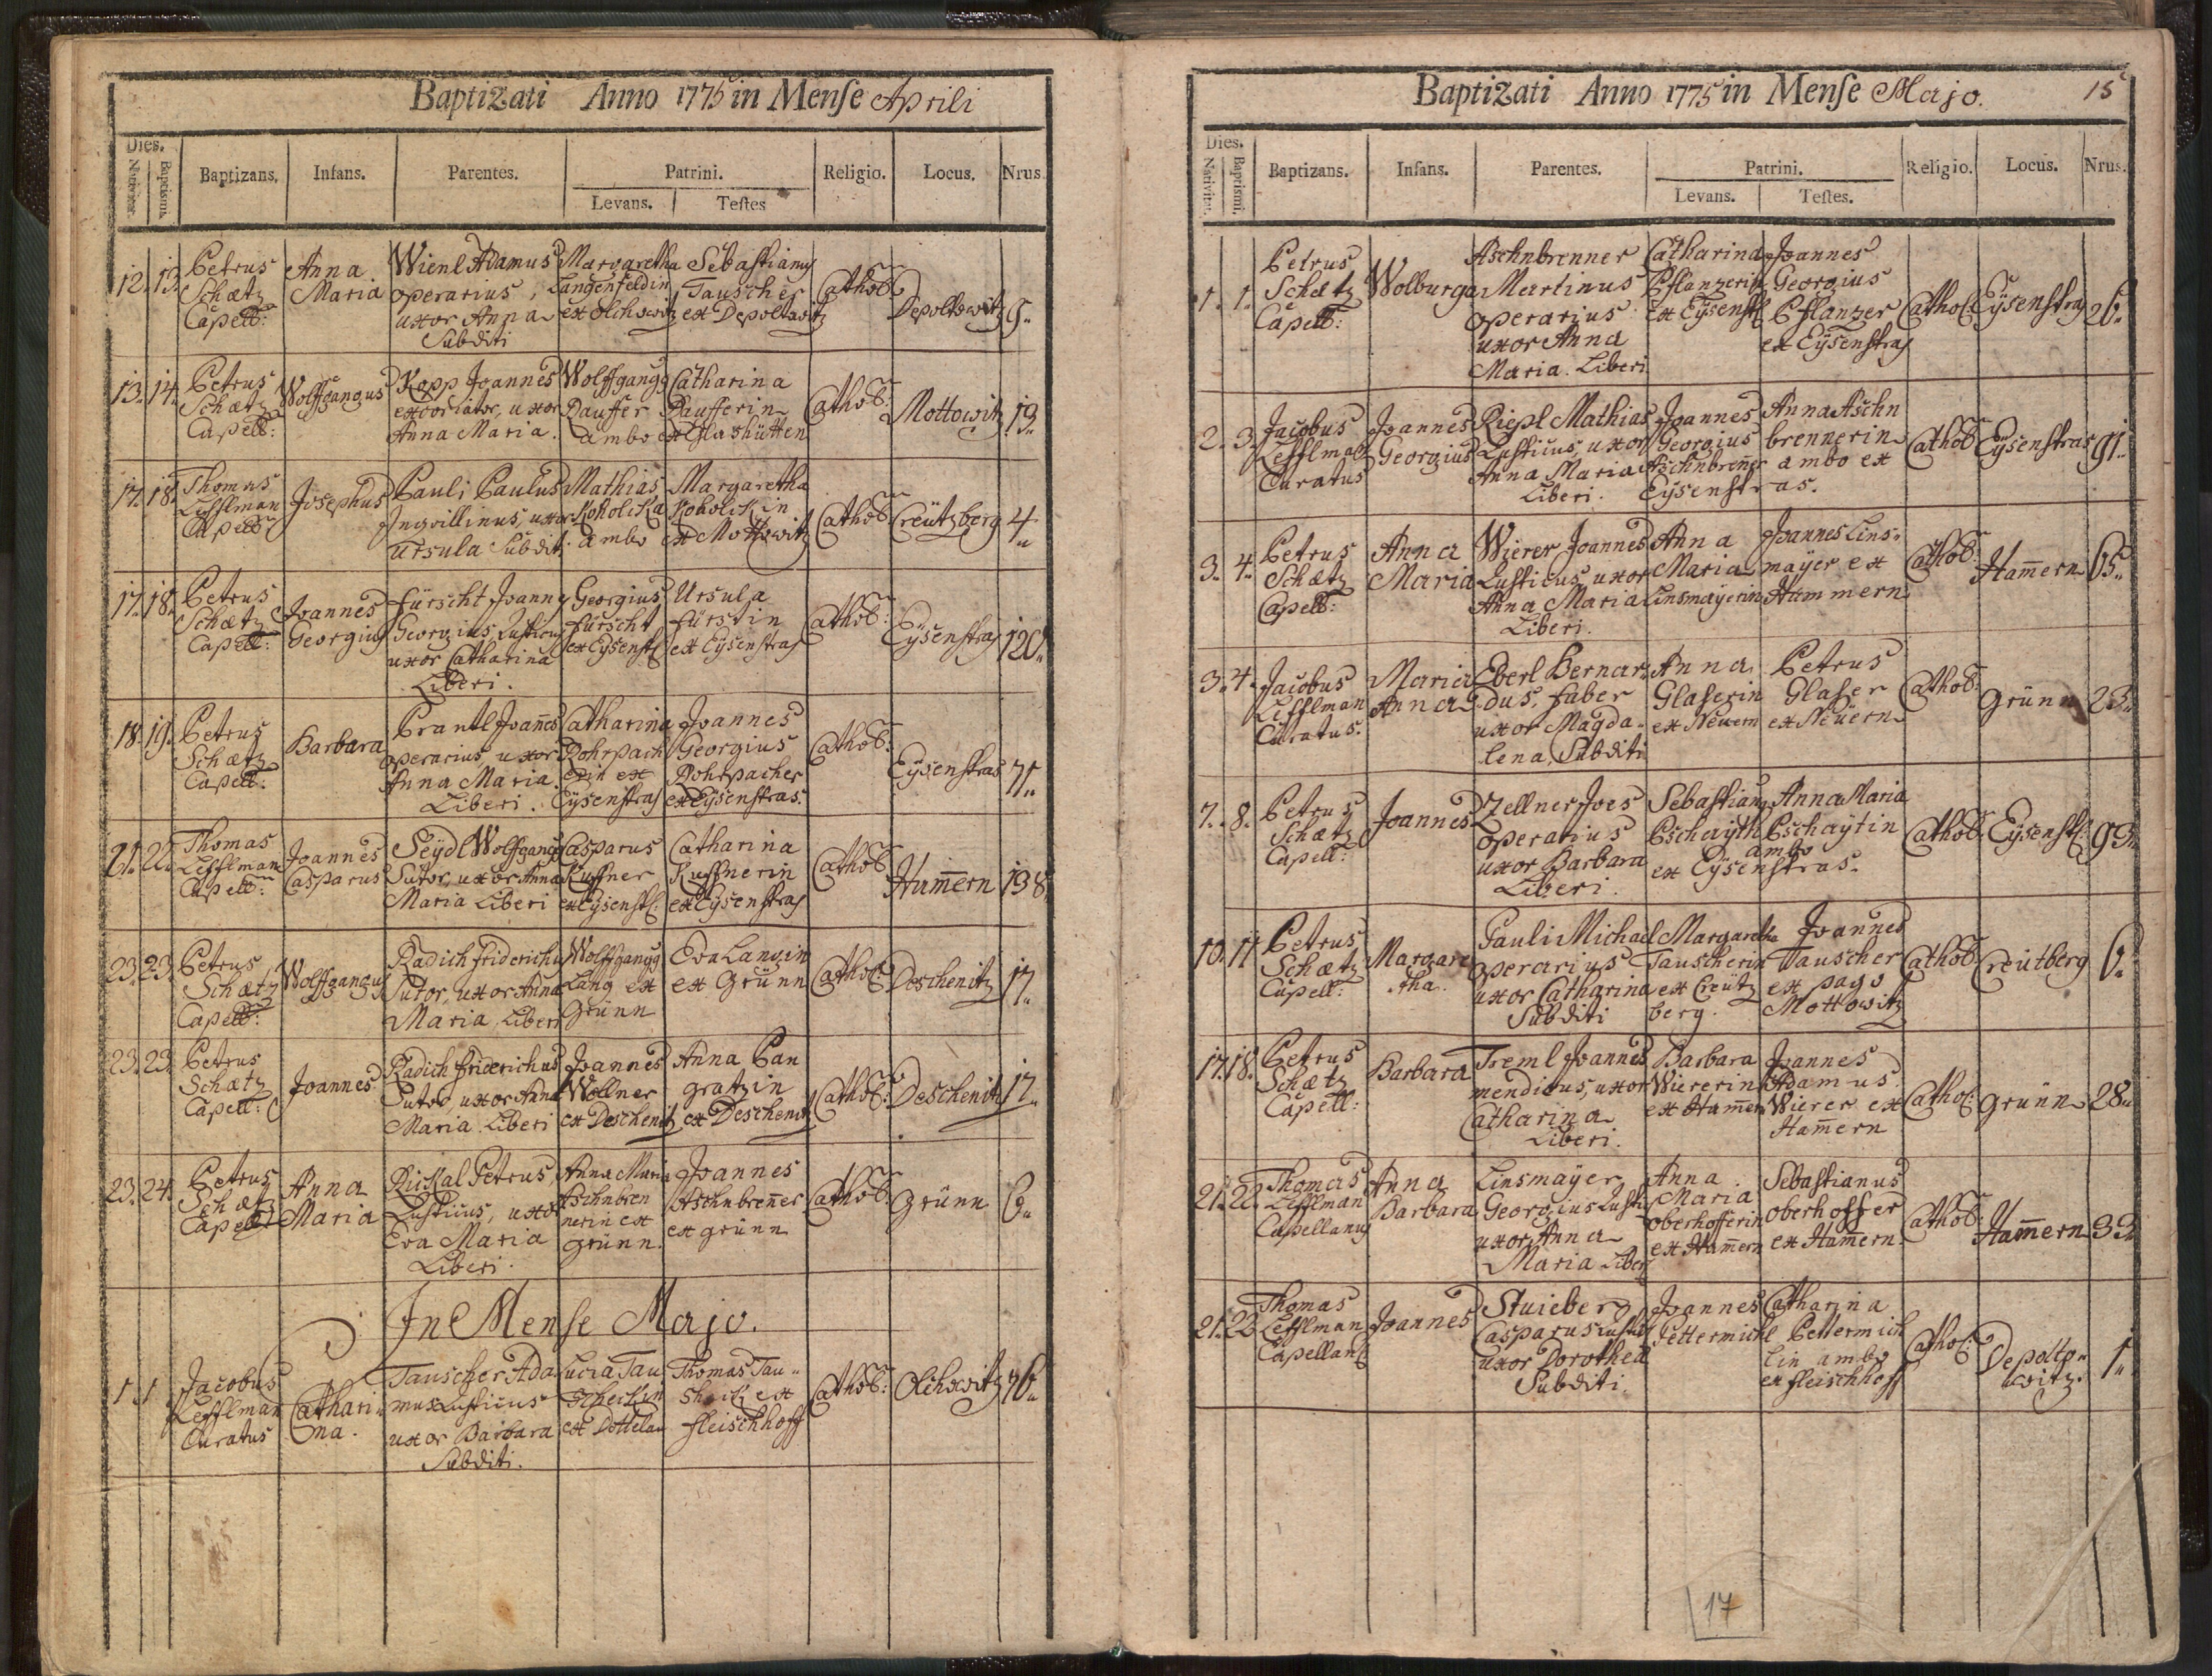 Baptizati Anno 1775 in Mense Aprili
Dies.
Nativitat. Baptismi. Baptizans. Infans. Parentes. Patrini. Religio. Locus. Nrus.
Levans. Testes
12. 13. Petrus Schætz Capell: Anna Maria Wienl Adamus operarius, uxor Anna Subditi Margaretha Langenfeldin ex Olchowitz Sebastianus Tauscher ex Depoltowitz Cathol: Depoltowitz 9.
13. 14. Petrus Schætz Capell: Wolffgangus Kopp Joannes excoriator, uxor Anna Maria. Wolffgangg Dauffer Catharina Daufferin ambo ex Glashütten Cathol: Mottowitz 19.
17. 18. Thomas Lefflman Capell: Josephus Pauli Paulus Inquilinus, uxor Ursula Subditi. Mathias Koholicka Margaretha Koholickin ambo ex Mottowitz Cathol: Creützberg 4.
17. 18. Petrus Schætz Capell: Joannes Georgius Fürscht Joannes Georgius Rusticus uxor Catharina Liberi. Georgius Fürscht ex Eÿsenst: Ursula Fürstin ex Eÿsenstras Cathol: Eÿsenstras 120.
18. 19. Petrus Schætz Capell: Barbara Prantl Joan̄es operarius uxor Anna Maria. Liberi. Catharina Rohrpacherin ex Eÿsenstras Joannes Georgius Rohrpacher ex Eÿsenstras. Cathol: Eÿsenstras 71.
21. 22. Thomas Lefflman Capell: Joannes Casparus Seÿdl Wolffgang Sutor, uxor Anna Maria Liberi Casparus Kuffner ex Eÿsenst: Catharina Kuffnerin ex Eÿsenstras Cathol: Ham̄ern 138.
23. 23. Petrus Schætz Capell: Wolffgangus Radich Friderichus Sutor, uxor Anna Maria, Liberi Wolffgangg Lang ex Grünn Eva Langin ex Grünn Cathol: Deschenitz 17.
23. 23. Petrus Schætz Capell: Joannes Radich Friderichus Sutor uxor Anna Maria Liberi Joannes Wollner ex Deschenitz Anna Pangratzin ex Deschenitz Cathol: Deschenitz 17.
23. 24. Petrus Schætz Capell: Anna Maria Rückal Petrus, Rusticus, uxor Eva Maria Liberi. Anna Maria Aschnbrennerin ex Grünn. Joannes Aschnbren̄er ex Grünn Cathol: Grünn 6.
In Mense Majo.
1. 1 Jacobus Lefflman Curatus Catharina. Tauscher Adamus Rusticus uxor Barbara Subditi. Lucia ex Dottelau Thomas ex Fleischhoff Cathol: Olchowitz 76.
Baptizati Anno 1775 in Mense Majo. 15
Dies.
Nativitat. Baptismi. Baptizans. Infans. Parentes. Patrini. Religio. Locus. Nrus.
Levans. Testes.
1. 1. Petrus Schætz Capell: Wolburga Aschnbrenner Martinus operarius uxor Anna Maria. Liberi Catharina Pflanzerin ex Eÿsenst: Joannes Georgius Pflanzer ex Eÿsenstras Cathol: Eÿsenstras 26.
2. 3. Jacobus Lefflman Curatus Joannes Georgius Riepl Mathias Rusticus, uxor Anna Maria Liberi. Joannes Georgius Aschnbren̄er Anna Aschnbrennerin ambo ex Eÿsenstras. Cathol: Eÿsenstras 91.
3. 4. Petrus Schætz Capell: Anna Maria Wierer Joannes Rusticus, uxor Anna Maria Liberi. Anna Maria Linsmayerin Joannes Linsmaÿer ex Hammern Cathol: Ham̄ern 65.
3. 4. Jacobus Lefflman Curatus. Maria Anna Eberl Bernardus, Faber uxor Magdalena, Subditi Anna Glaserin ex Neuern Petrus Glaser ex Neüern Cathol: Grünn 23.
7. 8. Petrus Schætz Capell: Joannes Zellner Joes operarius uxor Barbara Liberi. Sebastianus Pschaÿth Anna Maria Pschaÿtin ambo ex Eÿsenstras. Cathol: Eÿsenst: 93.
10. 11 Petrus Schætz Capell: Margaretha. Pauli Michael operarius uxor Catharina Subditi Margaretha Tauscherin ex Creützberg. Joannes Tauscher ex pago Mottowitz Cathol: Creutberg 6.
17. 18. Petrus Schætz Capell: Barbara Treml Joannes mendicus, uxor Catharina Liberi. Barbara Wiererin ex Ham̄ern Joannes Adamus Wierer ex Ham̄ern Cathol: Grünn 28.
21. 22. Thomas Lefflman Capellanus Anna Barbara Linsmaÿer Georgius Rusti: uxor Anna Maria Liberi Anna Maria Oberhofferin ex Ham̄ern Sebastianus Oberhoffer ex Ham̄ern. Cathol: Ham̄ern 33.
21. 22 Thomas Lefflman Capellanus Joannes Stuieber Casparus Rusti: uxor Dorothea Subditi. Joannes Pettermichl Catharina Pettermichlin ambo ex Fleischhoff Cathol: Depoltowitz. 1.
17